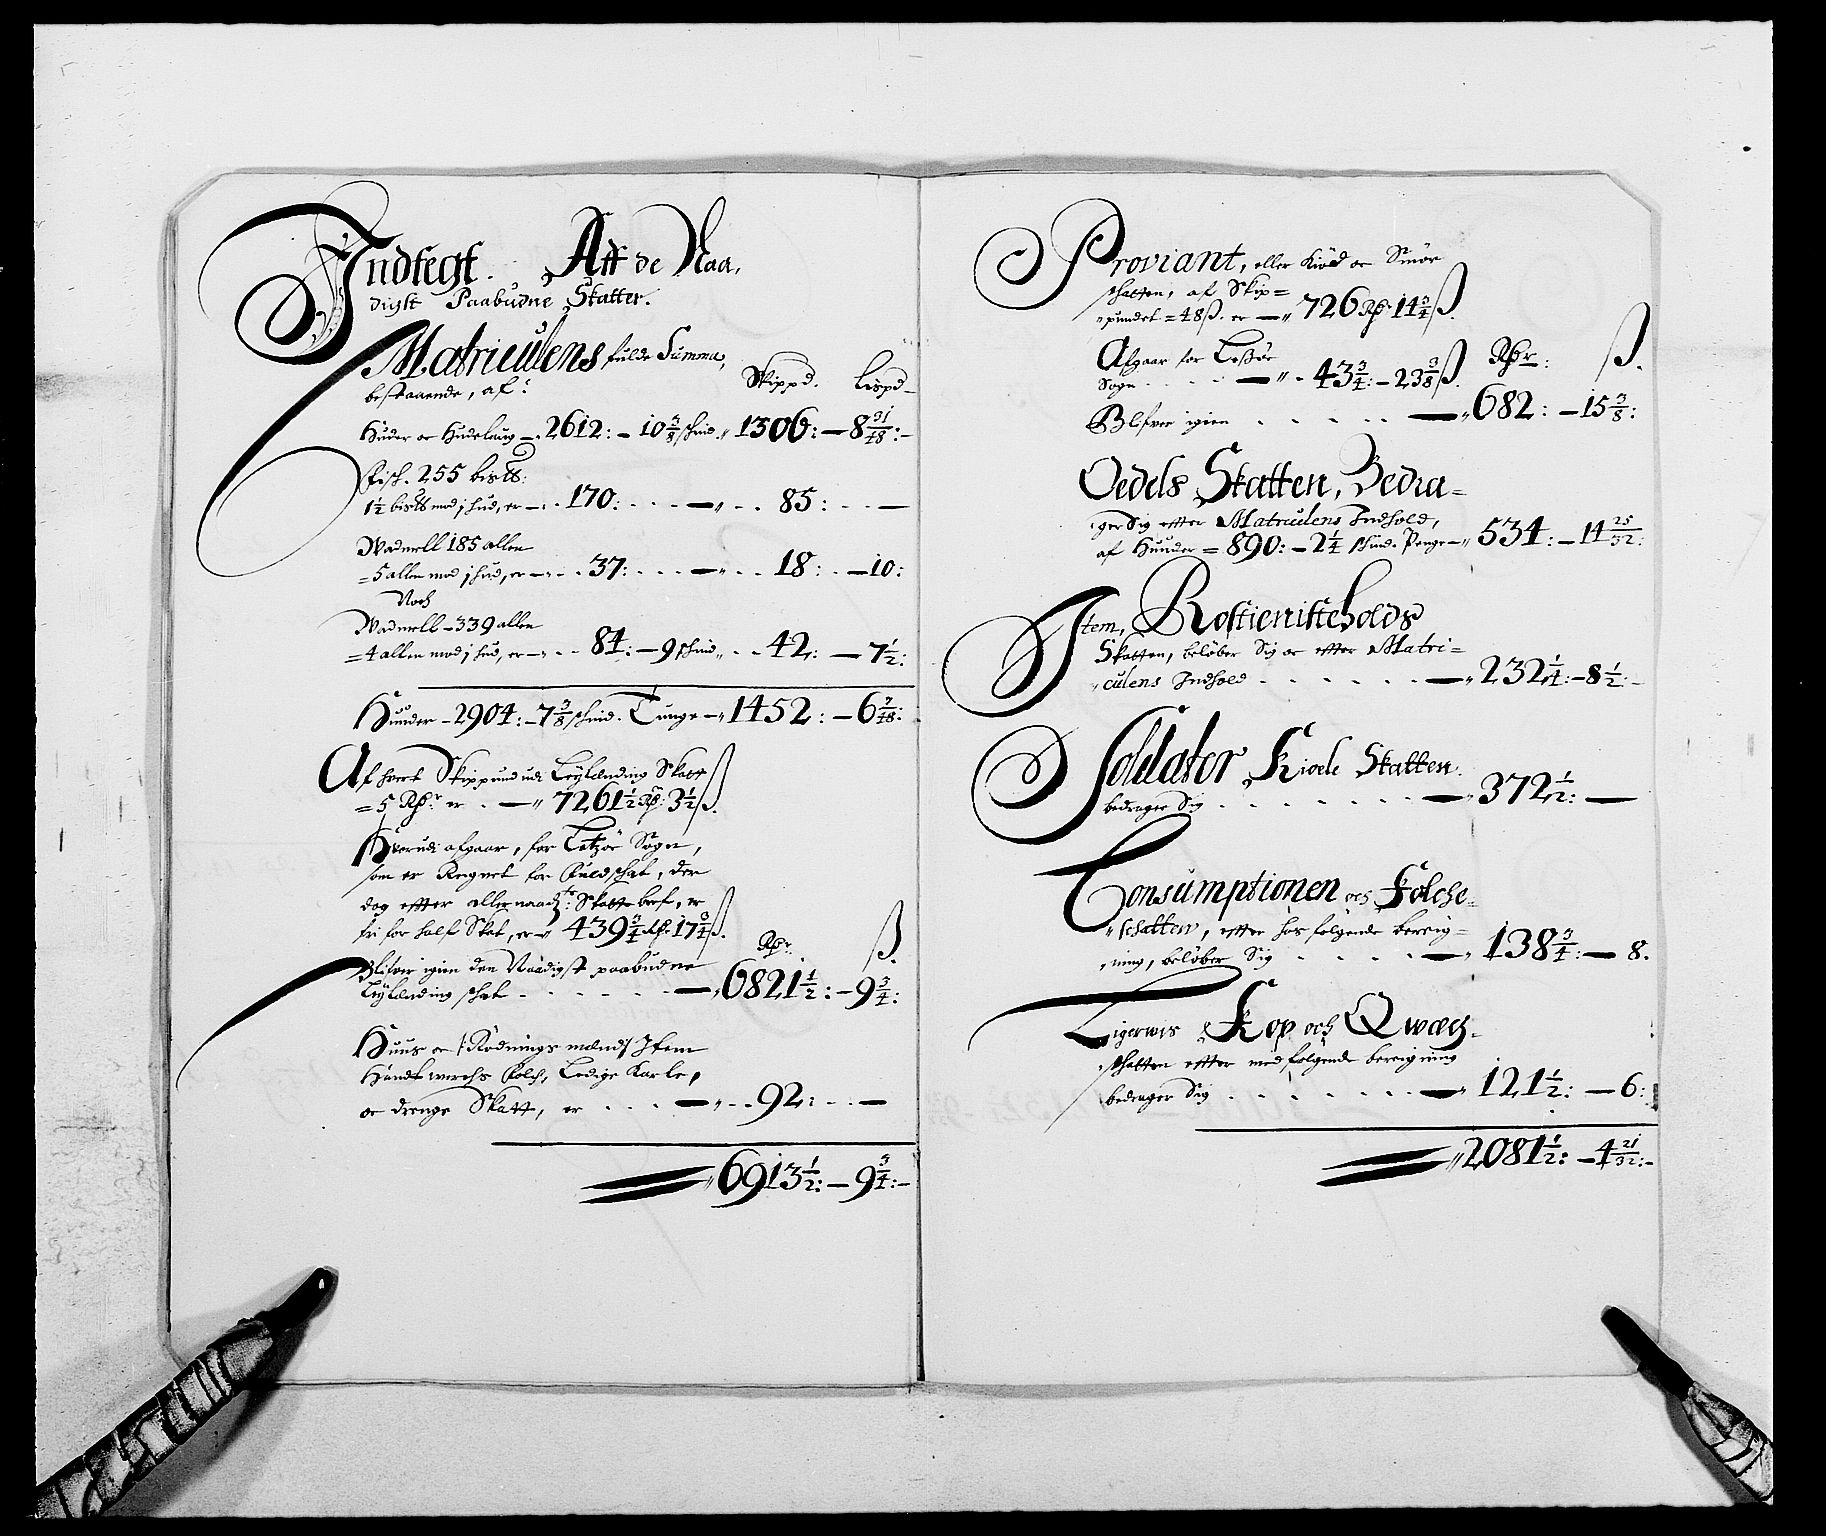 Indtegt. Aff de Naa,
digst Paabudne Skatter.
Matriculens fulde Summa,
bestaaende, af: Skippd. Lispd
Huder oc Hudelaug 2612: - 10 3/8 skind. 1306: - 8 31/48:
Fisk. 255 bismr:
1½ bismr mod j hud, er - 170: 85: —
Wadmell 185 allen
= 5 allen mod j hud, er - 37: 18: - 10:
Noch
Wadmell - 339 allen
= 4 allen mod j hud, er - 84: - 9 skind 42: - 7½:
Huuder - 2904: - 7 3/8 skind. Tunge - 1452: - 6 7/48:
Af hvert Skippund udi Leylending Skatt
= 5 Rdr er - 7261½ Rdr: 3½ ß.
Hvorudi afgaar, for Sogn,
som er Regnet for fuldskat, der
dog effter allernaadte: Skatte bref, er
fri for half Skat, er 439¾ Rdr 17¾ ß. Rdr. ß.
Blifver igien den Naadigst paabudne
Leylending skat - 6821½: - 9¾:
Huus oc /: Rødnings mænd :/ Item
Handtwerchs folch, Ledige Karle,
oc drenge Skatt, er - 92: —
6913½: - 9¾:
Proviant, eller Kiød oc Smør
skatten, af Skip=
pundet = 48 ß. er - 726 Rdr: 14¾ ß.
Afgaar for Rdr: ß.
Sogn - 43¾: - 23 3/8 ß.
Blifver igien - 682: - 15 3/8:
Oedels Skatten, Bedra=
ger Sig effter Matriculens Indhold,
af Huuder = 890: - 2¼ skind. Penge - 534: - 14 25/32:
Item, Rostienisteholds
Skatten, beløber Sig oc effter Matri=
culens Indhold - 232¼: - 8½:
Soldater Kiole Skatten
bedrager Sig - 372½: —
Consumptionen och Folche=
schatten, effter hos følgende bereig=
ning, beløber Sig - 138¾: - 8.
Ligerwis Kop och Qwæg=
skatten effter med følgende bereigning
bedrager Sig - 121½: - 6:
2081½: - 4 21/32: